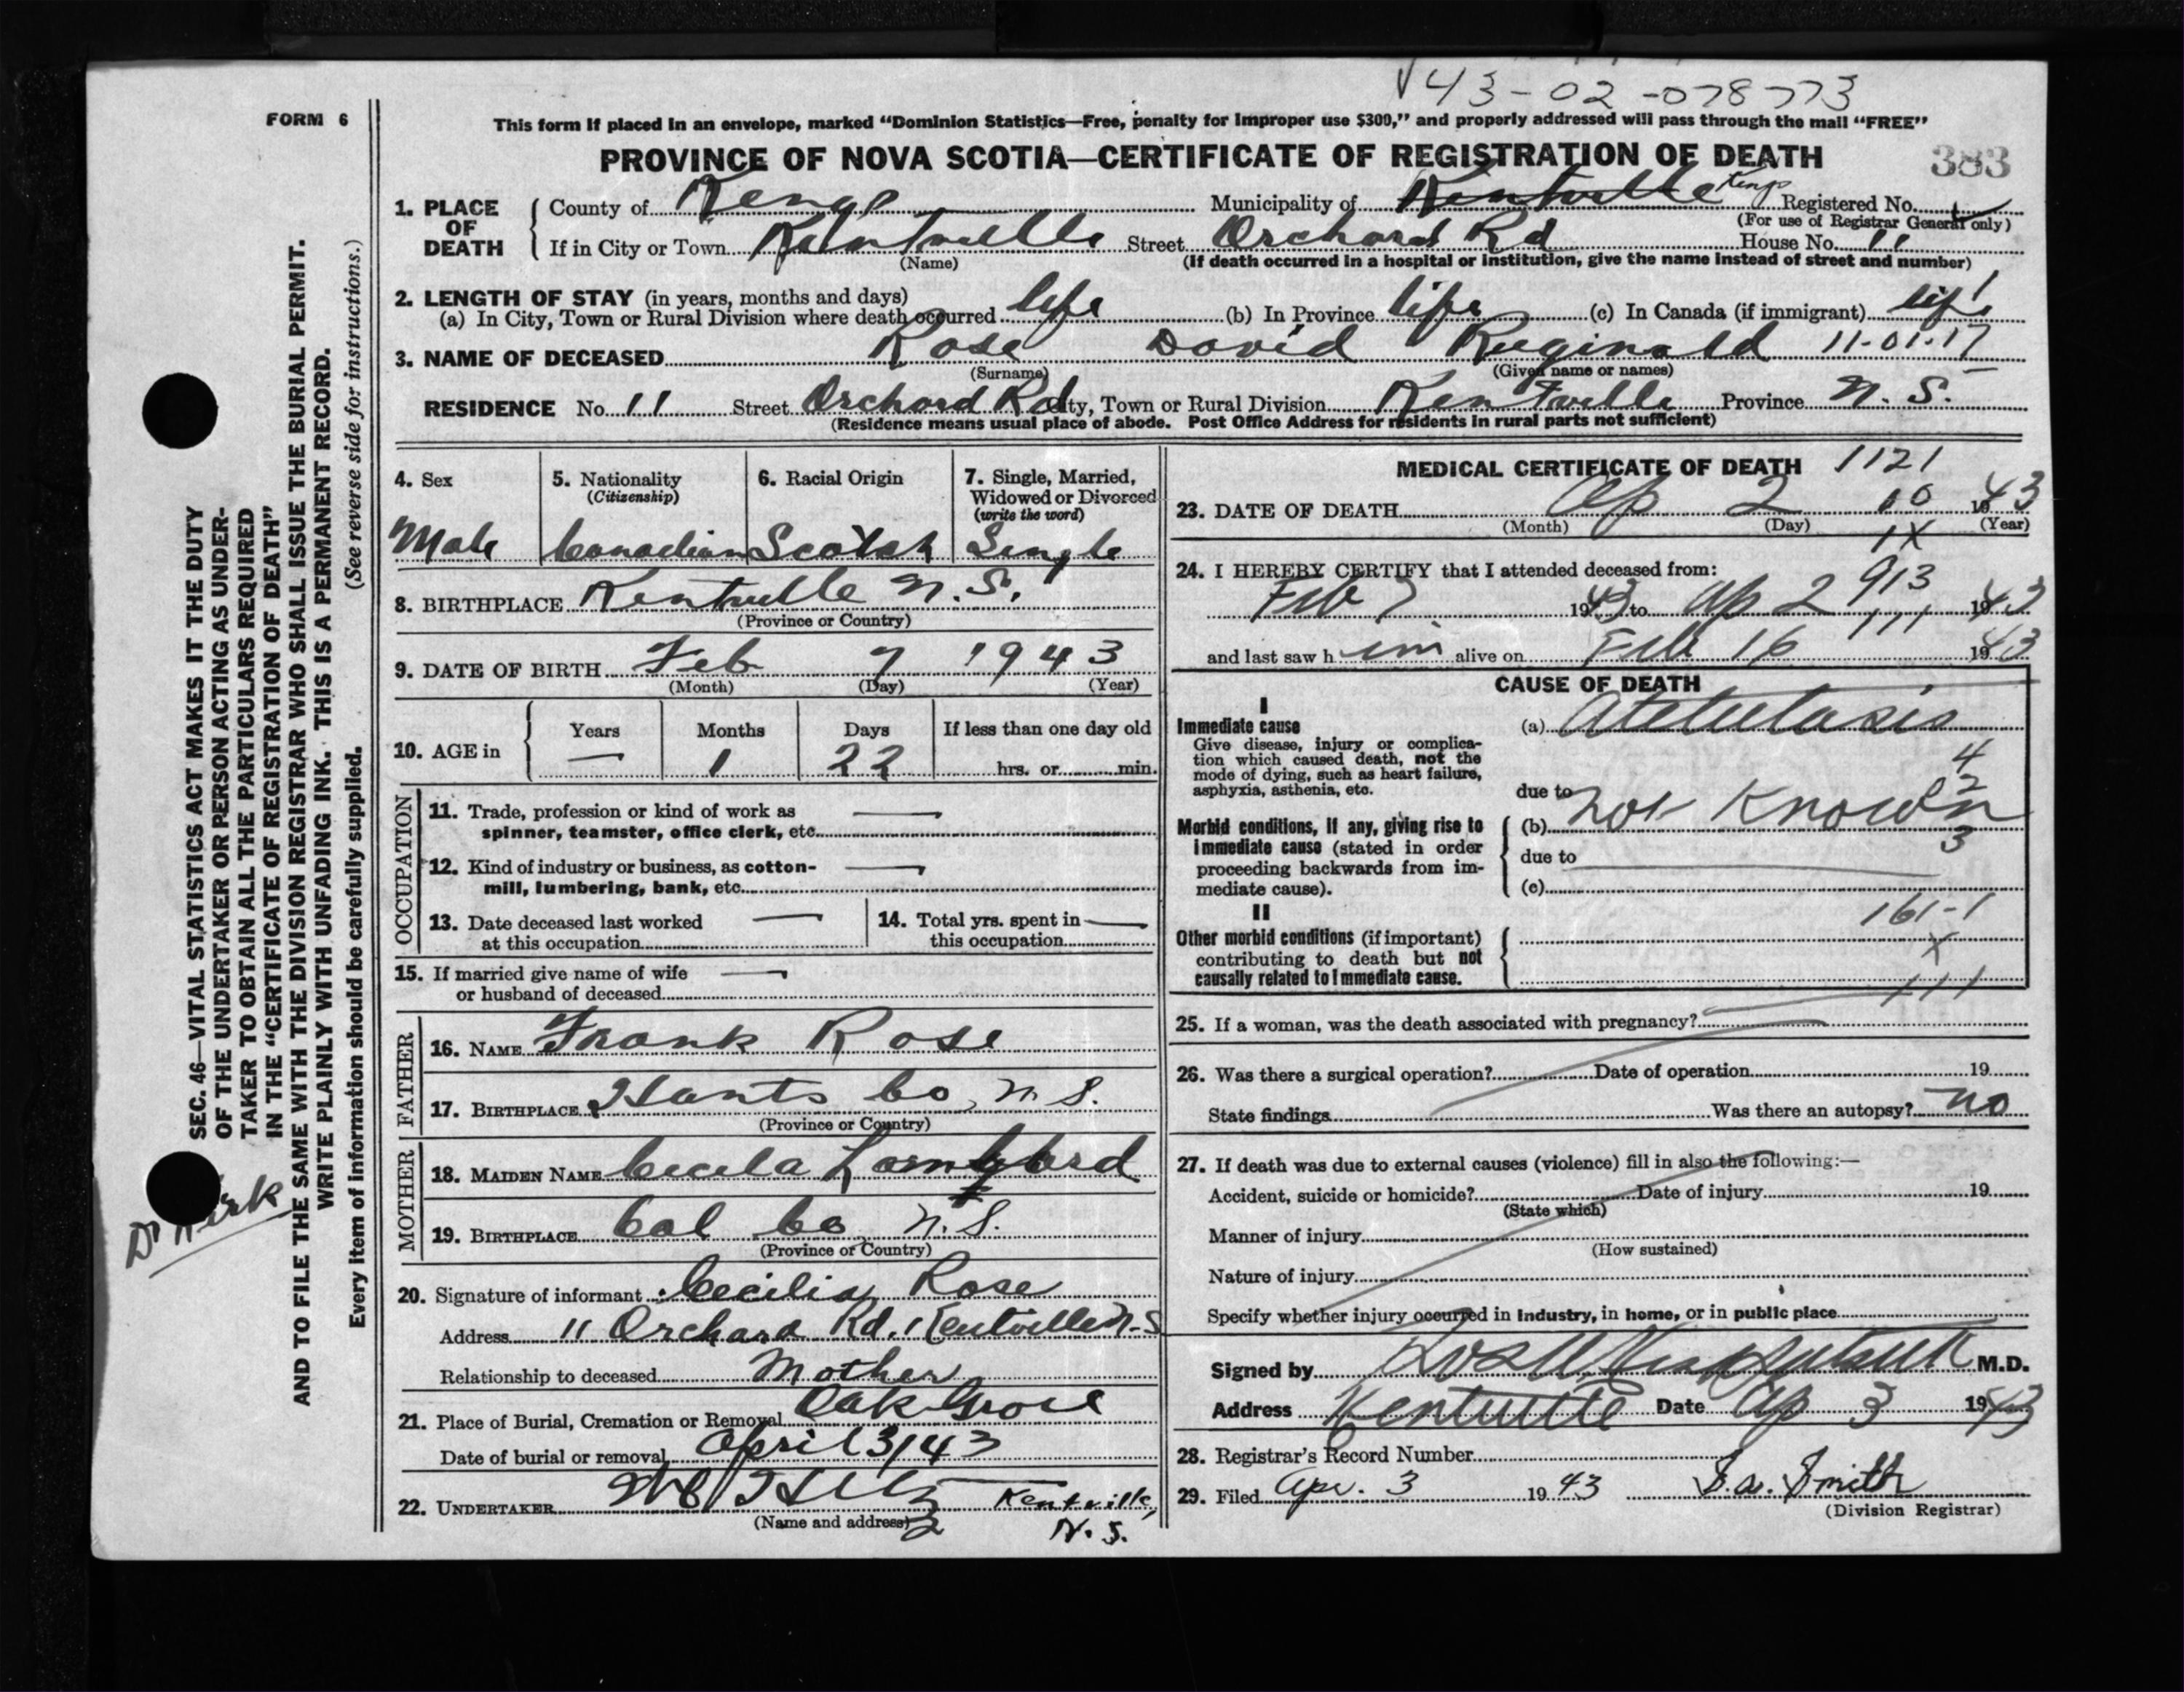 ✓43-02-078773
FORM 6
This form if placed in an envelope, marked “Dominion Statistics—Free, penalty for improper use $300,” and properly addressed will pass through the mail “FREE”
PROVINCE OF NOVA SCOTIA—CERTIFICATE OF REGISTRATION OF DEATH 383
1. PLACE OF DEATH
County of Kings Municipality of Kentville Kings Registered No.
(For use of Registrar General only)
If in City or Town Kentville Street Orchard Rd House No. 11
(Name) (If death occurred in a hospital or institution, give the name instead of street and number)
2. LENGTH OF STAY (in years, months and days)
(a) In City, Town or Rural Division where death occurred life (b) In Province life (c) In Canada (if immigrant) life
3. NAME OF DECEASED Rose David Reginald 11-01-17
(Surname) (Given name or names)
RESIDENCE No. 11 Street Orchard Rd City, Town or Rural Division Kentville Province N. S.
(Residence means usual place of abode. Post Office Address for residents in rural parts not sufficient)
4. Sex
Male
5. Nationality
(Citizenship)
Canadian
6. Racial Origin
Scotch
7. Single, Married,
Widowed or Divorced
(write the word)
Single
8. BIRTHPLACE Kentville N.S.
(Province or Country)
9. DATE OF BIRTH Feb 7 1943
(Month) (Day) (Year)
10. AGE in
Years Months Days If less than one day old
— 1 22 hrs. or min.
OCCUPATION
11. Trade, profession or kind of work as —
spinner, teamster, office clerk, etc.
12. Kind of industry or business, as cotton- —
mill, lumbering, bank, etc.
13. Date deceased last worked —
at this occupation
14. Total yrs. spent in —
this occupation
15. If married give name of wife —
or husband of deceased
FATHER
16. NAME Frank Rose
17. BIRTHPLACE Hants Co, N S.
(Province or Country)
MOTHER
18. MAIDEN NAME Cecela
19. BIRTHPLACE Col Co N.S.
(Province or Country)
20. Signature of informant Cecilia Rose
Address 11 Orchard Rd. Kentville N-S
Relationship to deceased Mother
21. Place of Burial, Cremation or Removal Oak Grove
Date of burial or removal April 3/43
22. UNDERTAKER Kentville,
(Name and address) N. S.
MEDICAL CERTIFICATE OF DEATH 1121
23. DATE OF DEATH Ap 2 10 1943
(Month) (Day) (Year)
1X
24. I HEREBY CERTIFY that I attended deceased from:
913
Feb 7 1943 to Ap 2 1943
111
and last saw h im alive on Feb 16 1943
CAUSE OF DEATH
I
Immediate cause
Give disease, injury or complica-
tion which caused death, not the
mode of dying, such as heart failure,
asphyxia, asthenia, etc.
(a) Atelectasis
4
2
due to
Morbid conditions, if any, giving rise to
immediate cause (stated in order
proceeding backwards from im-
mediate cause).
(b) not known
3
due to
(c)
161-1
II
Other morbid conditions (if important)
contributing to death but not
causally related to immediate cause.
X
111
25. If a woman, was the death associated with pregnancy?
26. Was there a surgical operation? Date of operation 19
State findings Was there an autopsy? no
27. If death was due to external causes (violence) fill in also the following:—
Accident, suicide or homicide? Date of injury 19
(State which)
Manner of injury
(How sustained)
Nature of injury
Specify whether injury occurred in industry, in home, or in public place
Signed by M.D.
Address Kentville Date Ap 3 1943
28. Registrar's Record Number
29. Filed Apr. 3 1943 Smith
(Division Registrar)
SEC. 46—VITAL STATISTICS ACT MAKES IT THE DUTY
OF THE UNDERTAKER OR PERSON ACTING AS UNDER-
TAKER TO OBTAIN ALL THE PARTICULARS REQUIRED
IN THE “CERTIFICATE OF REGISTRATION OF DEATH”
AND TO FILE THE SAME WITH THE DIVISION REGISTRAR WHO SHALL ISSUE THE BURIAL PERMIT.
WRITE PLAINLY WITH UNFADING INK. THIS IS A PERMANENT RECORD.
Every item of information should be carefully supplied. (See reverse side for instructions.)
Dr Kirk